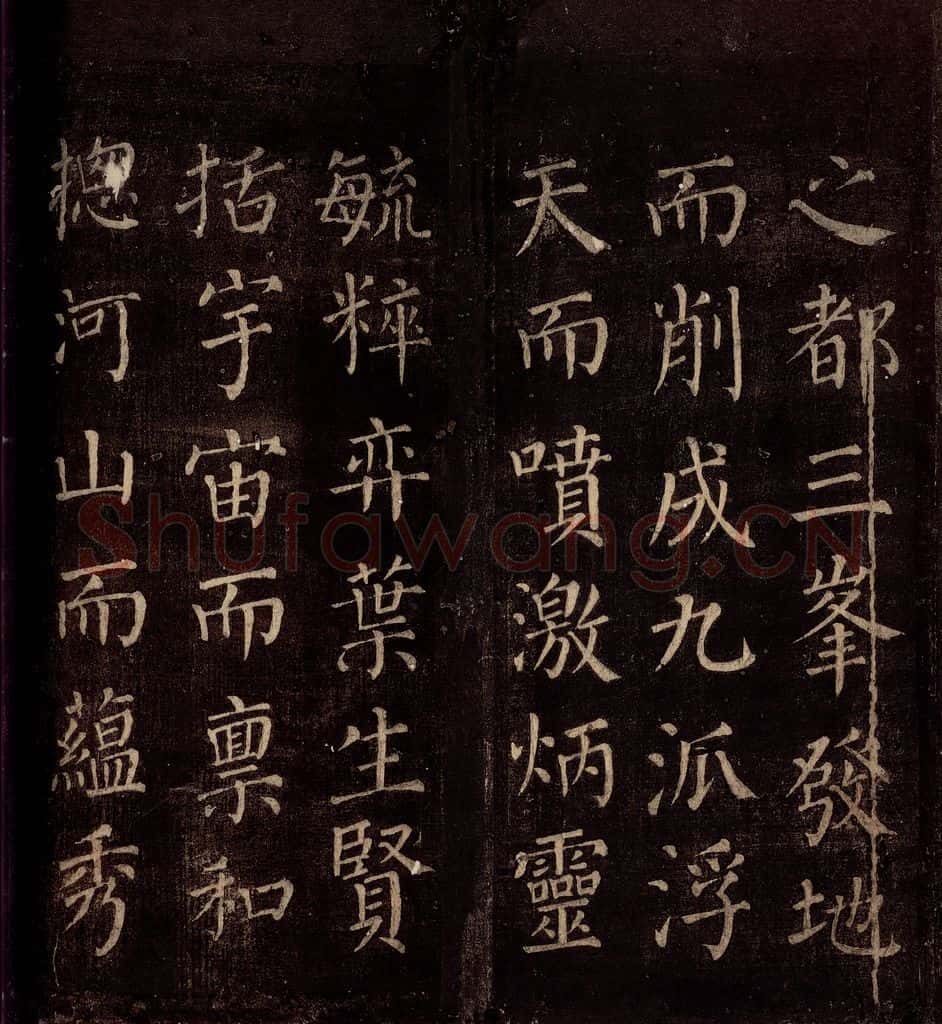 之都三峯發地
而削成九派浮
天而噴激炳靈
毓粹弈葉生賢
括宇宙而禀和
揔河山而蘊秀
Shufawang.CN